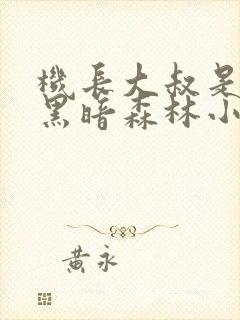 機長大叔是
黑暗森林小
黃永